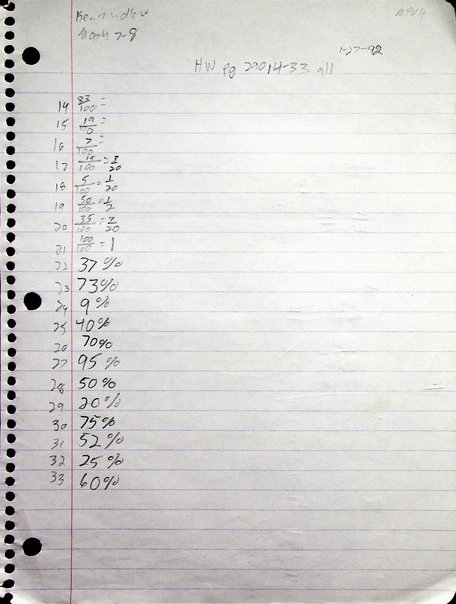 Math 7-8
1-27-92
HW pg 290 14-33 all
14 83/100 =
15 19/ =
16 7/100 =
17 15/100 = 3/20
18 5/100 = 1/20
19 50/100 = 1/2
20 35/100 = 7/20
21 100/100 = 1
22 37%
23 73%
24 9%
25 40%
26 70%
27 95%
28 50%
29 20%
30 75%
31 52%
32 25%
33 60%